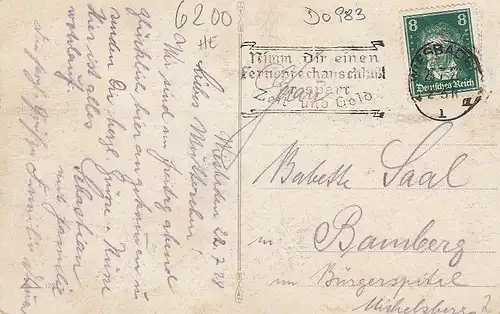 6200
HE
Do 983
Nimm Dir einen
Fernsprechanschluß
erspart
Zeit und Geld
8 8
Deutsches Reich
WIESBADEN
1
Wiesbaden 22.7.28
Liebes Mutterchen!
Wir sind am Freitag abend
glücklich hier angekommen u.
senden Dir herzl. Grüße u. Küsse
Hier ist alles
wohlauf.
Sebastian
mit Familie
Frau
Babette Saal
in Bamberg
im Bürgerspital
Michelsberg 2